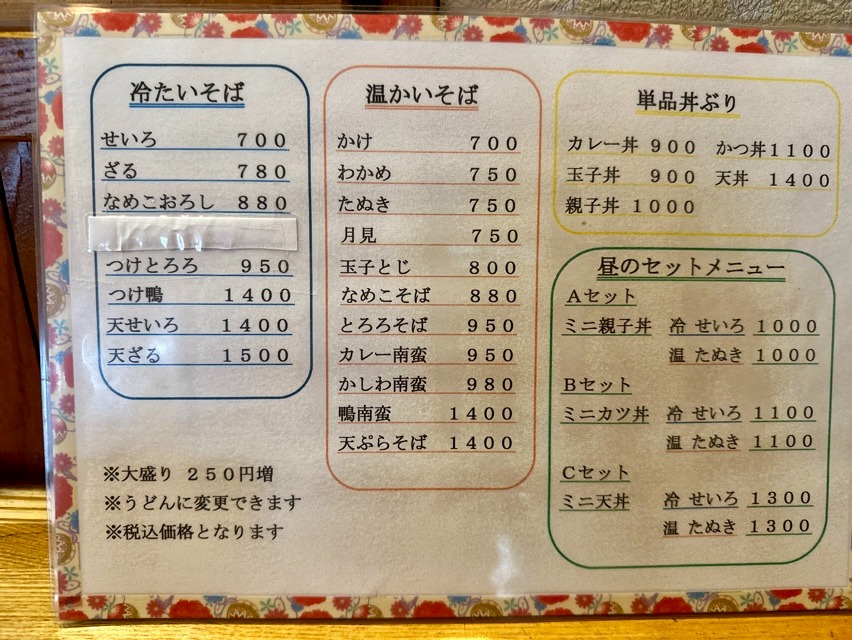 冷たいそば
せいろ ７００
ざる ７８０
なめこおろし ８８０
つけとろろ ９５０
つけ鴨 １４００
天せいろ １４００
天ざる １５００
※大盛り ２５０円増
※うどんに変更できます
※税込価格となります
温かいそば
かけ ７００
わかめ ７５０
たぬき ７５０
月見 ７５０
玉子とじ ８００
なめこそば ８８０
とろろそば ９５０
カレー南蛮 ９５０
かしわ南蛮 ９８０
鴨南蛮 １４００
天ぷらそば １４００
単品丼ぶり
カレー丼 ９００ かつ丼１１００
玉子丼 ９００ 天丼 １４００
親子丼 １０００
昼のセットメニュー
Ａセット
ミニ親子丼 冷 せいろ １０００
温 たぬき １０００
Ｂセット
ミニカツ丼 冷 せいろ １１００
温 たぬき １１００
Ｃセット
ミニ天丼 冷 せいろ １３００
温 たぬき １３００